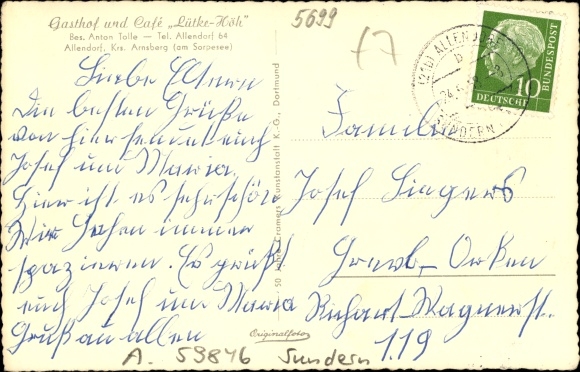 Gasthof und Café „Lütke-Höh"
Bes. Anton Tolle — Tel. Allendorf 64
Allendorf, Krs. Arnsberg (am Sorpesee)
Liebe Eltern
Die besten Grüße
von hier sendet euch
Josef und Maria.
Hier ist es sehr schön
Wir gehen immer
spazieren. Es grüßt
euch Josef und Maria
Gruß an allen
Cramers Kunstanstalt K.-G., Dortmund
Originalfoto
5699
f7
(21b) ALLENDORF
b
SUNDERN
10
DEUTSCHE
BUNDESPOST
Familie
Josef Siegers
Grevb-Orken
Richart-Wagnerst.
119
A. 59846 Sundern